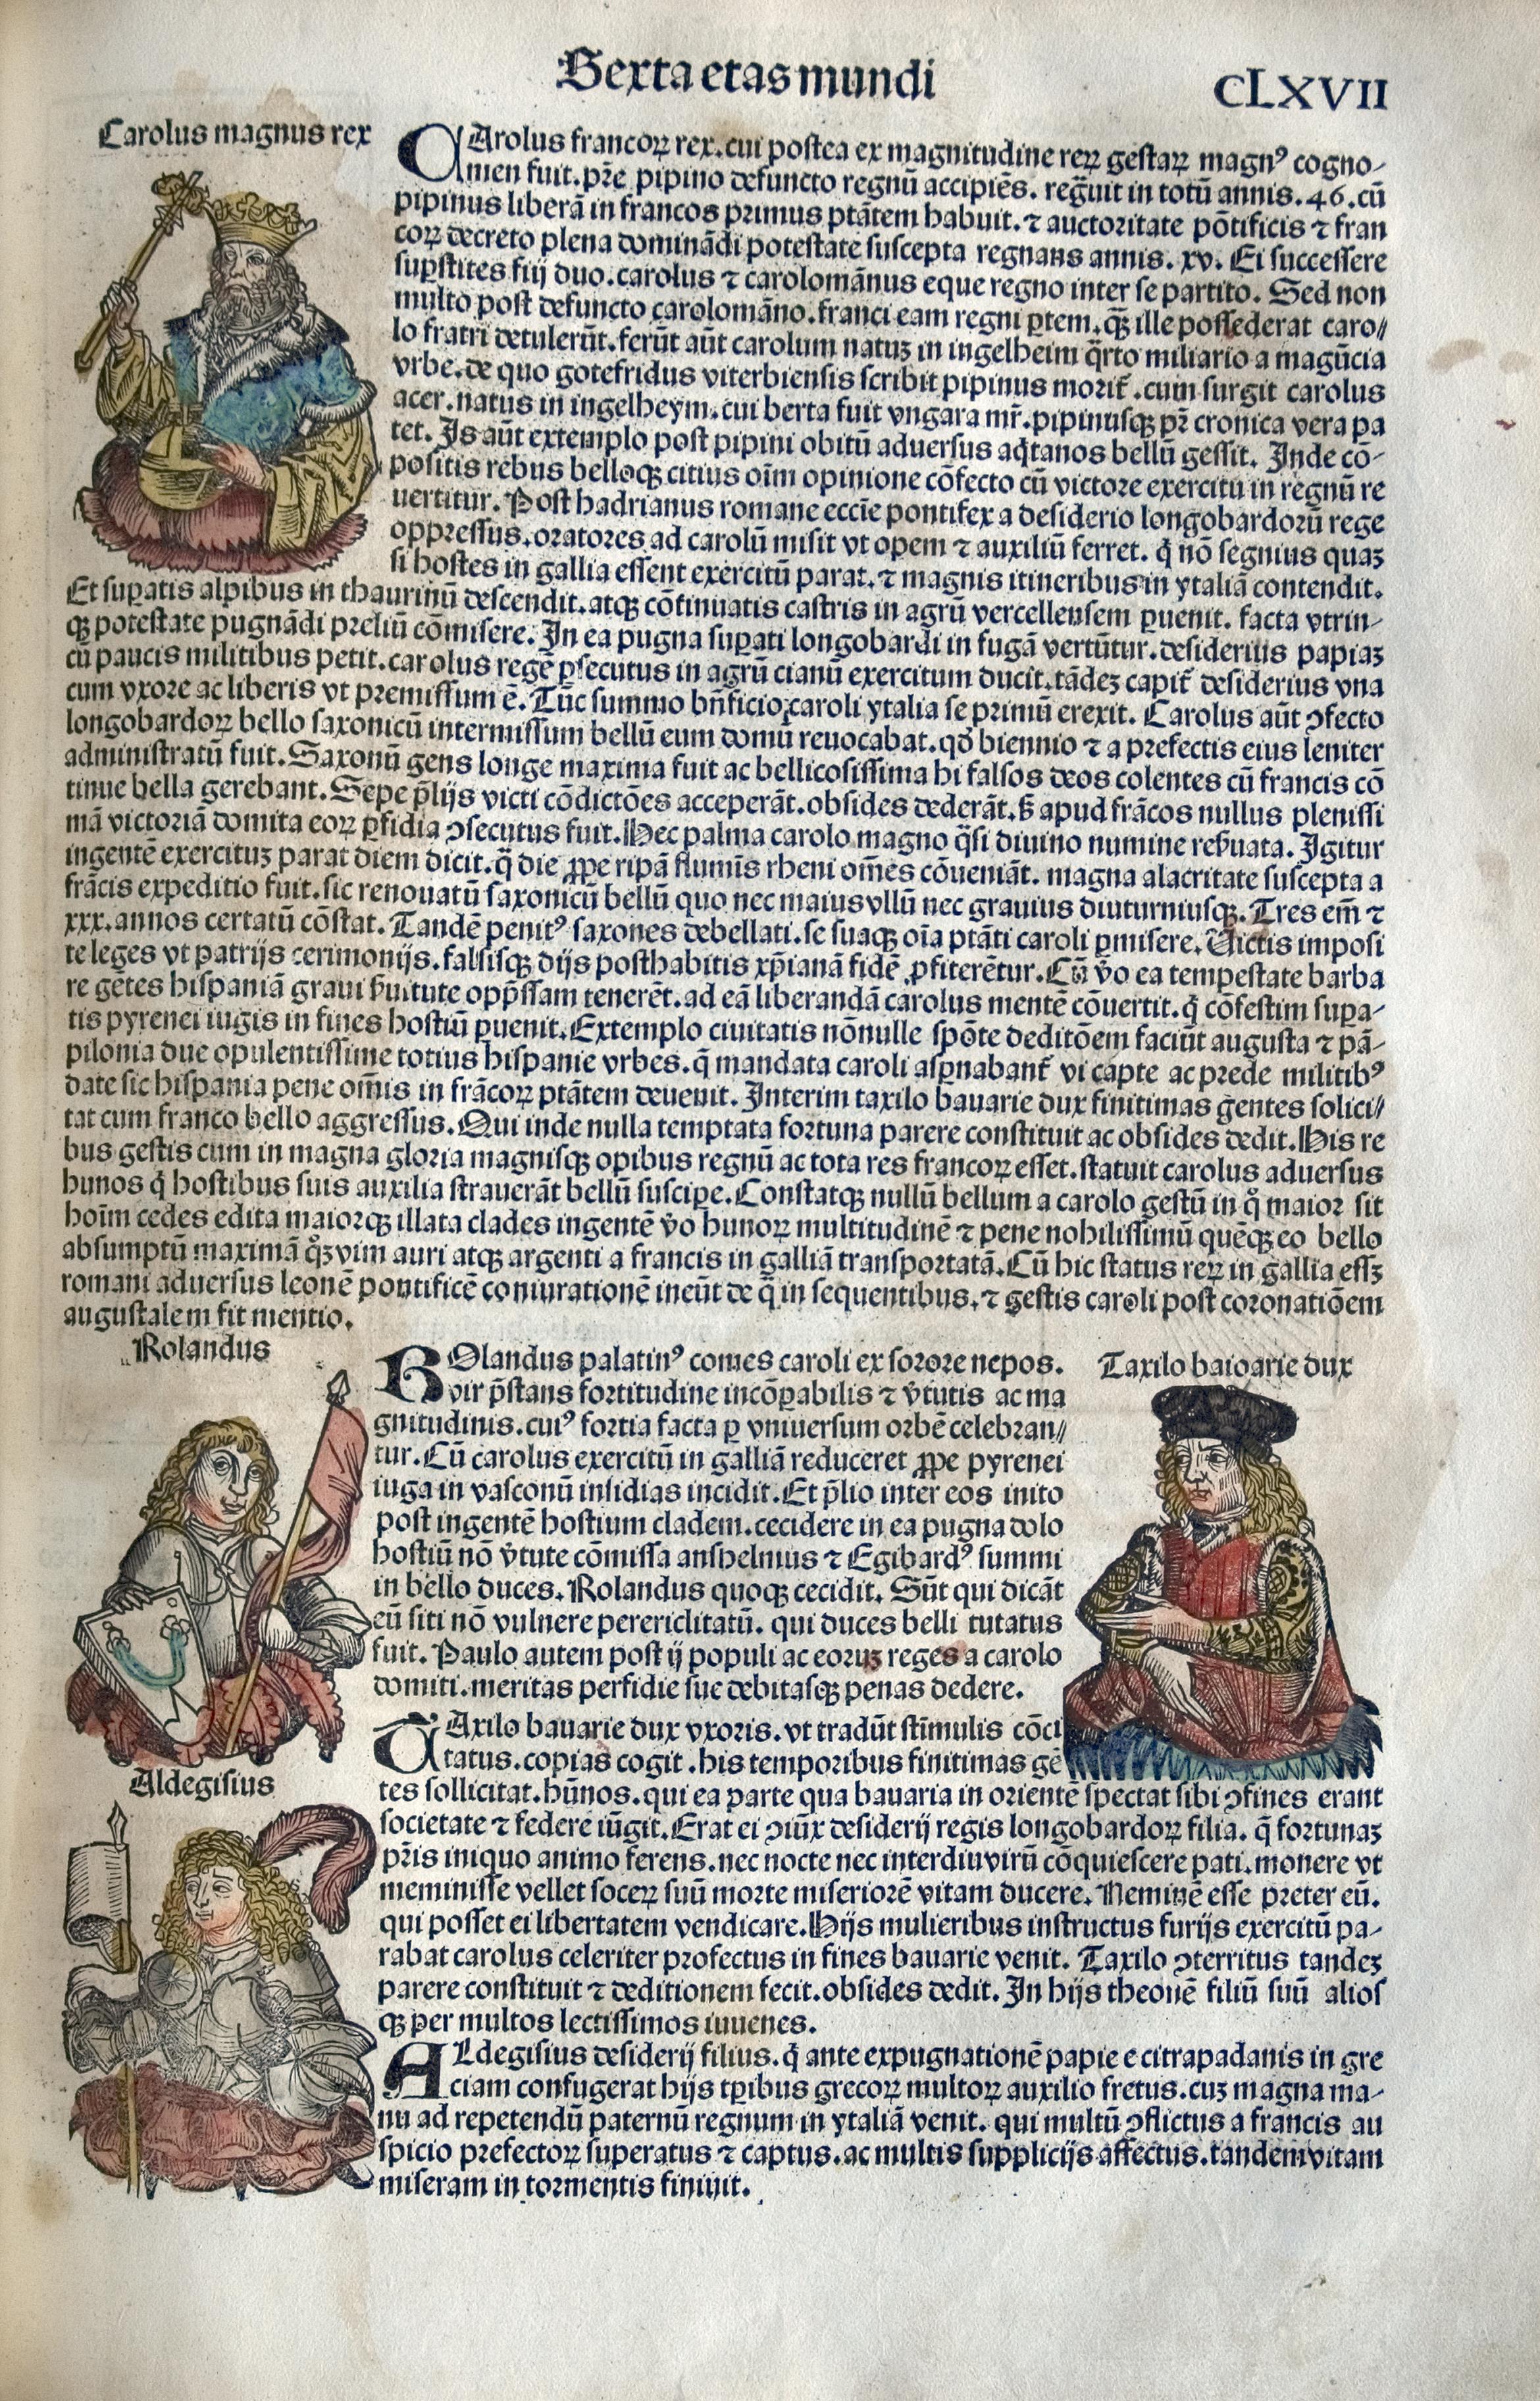 Sexta etas mundi
CLXVII
Carolus magnus rex
CArolus francoꝝ rex.cui postea ex magnitudine reꝝ gestaꝝ magnꝰ cogno-
men fuit.pr̄e pipino defuncto regnū accipiēs. regnuit in totū annis.46.cū
pipinus liberā in francos primus ptātem habuit.⁊ auctoritate pōtificis ⁊ fran
coꝝ decreto plena dominādi potestate suscepta regnans annis. xv. Ei successere
sup̄stites fiij duo.carolus ⁊ carolomānus eque regno inter se partito. Sed non
multo post defuncto carolomāno.franci eam regni ꝑtem.qꝫ̄ ille possederat caro//
lo fratri detulerūt.ferūt aūt carolum natuꝫ in ingelheim q̈rto miliario a magūcia
vrbe.de quo gotefridus viterbiensis scribit pipinus morit᷑.cum surgit carolus
acer.natus in ingelheym.cui berta fuit vngara mr̄.pipinusqꝫ pr̄ cronica vera pa
tet. Is aūt extemplo post pipini obitū adversus aq̇tanos bellū gessit. Inde cō-
positis rebus belloqꝫ citius oīm opinione cōfecto cū victore exercitu in regnū re
uertitur. Post hadrianus romane eccīe pontifex a desiderio longobardorū rege
oppressus.oratores ad carolū misit vt opem ⁊ auxiliū ferret. q̇ nō segnius quaꝫ
si hostes in gallia essent exercitū parat.⁊ magnis itineribus in ytaliā contendit.
Et sup̄atis alpibus in thaurinū descendit.atqꝫ cōtinuatis castris in agrū vercellensem ꝑuenit. facta vtrin-
qꝫ potestate pugnādi preliū cōmisere. In ea pugna sup̄ati longobardi in fugā vertūtur.desiderius papiaꝫ
cū paucis militibus petit.carolus regē ꝑsecutus in agrū cianū exercitum ducit.tādeꝫ capit᷑ desiderius vna
cum vxore ac liberis vt premissum ē. Tūc summo bn̄ficio caroli ytalia se primū erexit. Carolus aūt ꝯfecto
longobardoꝝ bello saxonicū intermissum bellū eum domū reuocabat.qd̄ biennio ⁊ a prefectis eius leniter
administratū fuit. Saxonū gens longe maxima fuit ac bellicosissima hi falsos deos colentes cū francis cō
tinue bella gerebant. Sepe p̄lijs victi cōdictōes acceperāt.obsides dederāt.s̄ apud frācos nullus plenissi
mā victoriā domita eoꝝ ꝑfidia ꝯsecutus fuit. Hec palma carolo magno q̈si divino numine reſ̄uata. Igitur
ingentē exercituꝫ parat diem dicit.q̈ die ꝓpe ripā flumīs rheni om̄es cōueniāt. magna alacritate suscepta a
frācis expeditio fuit.sic renouatū saxonicū bellū quo nec maius vllū nec gravius diuturniusqꝫ. Tres em̄ ⁊
xxx.annos certatū cōstat. Tandē penitꝰ saxones debellati.se suaqꝫ oīa ptāti caroli ꝑmisere. Victis imposi
te leges vt patrijs cerimonijs.falsisqꝫ dijs posthabitis xp̄ianā fidē ꝓfiterētur. Cū v̄o ea tempestate barba
re gētes hispaniā graui ſ̄uitute opp̄ssam tenerēt.ad eā liberandā carolus mentē cōuertit.q̇ cōfestim sup̄a-
tis pyrenei iugis in fines hostiū ꝑuenit. Extemplo ciuitatis nōnulle spōte deditōem faciūt augusta ⁊ pā-
pilonia due opulentissime totius hispanie vrbes.q̄ mandata caroli asꝑnabant᷑ vi capte ac prede militibꝰ
date sic hispania pene om̄is in frācoꝝ ptātem deuenit. Interim taxilo bauarie dux finitimas gentes solici//
tat cum franco bello aggressus. Qui inde nulla temptata fortuna parere constituit ac obsides dedit. His re
bus gestis cum in magna gloria magnisqꝫ opibus regnū ac tota res francoꝝ esset.statuit carolus adversus
hunos q̇ hostibus suis auxilia strauerāt bellū suscipe. Constatqꝫ nullū bellum a carolo gestū in q̊ maior sit
hoīm cedes edita maiorqꝫ illata clades ingentē v̄o hunoꝝ multitudinē ⁊ pene nobilissimū quēqꝫ eo bello
absumptū maximā q̊qꝫ vim auri atqꝫ argenti a francis in galliā transportatā. Cū hic status reꝝ in gallia essꝫ
romani adversus leonē pontificē coniurationē ineūt de q̈ in sequentibus.⁊ gestis caroli post coronatiōem
augustalem fit mentio.
Rolandus
ROlandus palatinꝰ comes caroli ex sorore nepos.
vir p̄stans fortitudine incōꝑabilis ⁊ v̄tutis ac ma
gnitudinis.cuiꝰ fortia facta ꝑ vniuersum orbē celebran//
tur. Cū carolus exercitū in galliā reduceret ꝓpe pyrenei
iuga in vasconū insidias incidit. Et p̄lio inter eos inito
post ingentē hostium cladem.cecidere in ea pugna dolo
hostiū nō v̄tute cōmissa anshelmus ⁊ Egibardꝰ summi
in bello duces. Rolandus quoqꝫ cecidit. Sūt qui dicāt
eū siti nō vulnere perericlitatū. qui duces belli tutatus
fuit. Paulo autem post ij populi ac eoruꝫ reges a carolo
domiti.meritas perfidie sue debitasqꝫ penas dedere.
Taxilo baioarie dux
TAxilo bauarie dux vxoris.vt tradūt stimulis cōci
tatus.copias cogit.his temporibus finitimas gē
tes sollicitat.hūnos.qui ea parte qua bauaria in orientē spectat sibi ꝯfines erant
societate ⁊ federe iūgit. Erat ei ꝯiūx desiderij regis longobardoꝝ filia. q̄ fortunaꝫ
pr̄is iniquo animo ferens.nec nocte nec interdiu virū cōquiescere pati.monere vt
meminisse vellet soceꝝ suū morte miseriorē vitam ducere. Neminē esse preter eū.
qui posset ei libertatem vendicare. Hijs mulieribus instructus furijs exercitū pa-
rabat carolus celeriter profectus in fines bauarie venit. Taxilo ꝯterritus tandeꝫ
parere constituit ⁊ deditionem fecit.obsides dedit. In hijs theonē filiū suū alios
qꝫ per multos lectissimos iuuenes.
Aldegisius
ALdegisius desiderij filius.q̇ ante expugnationē papie e citrapadanis in gre
ciam confugerat hijs tꝑibus grecoꝝ multoꝝ auxilio fretus.cuꝫ magna ma-
nu ad repetendū paternū regnum in ytaliā venit. qui multū ꝯflictus a francis au
spicio prefectoꝝ superatus ⁊ captus.ac multis supplicijs affectus.tandem vitam
miseram in tormentis finiuit.